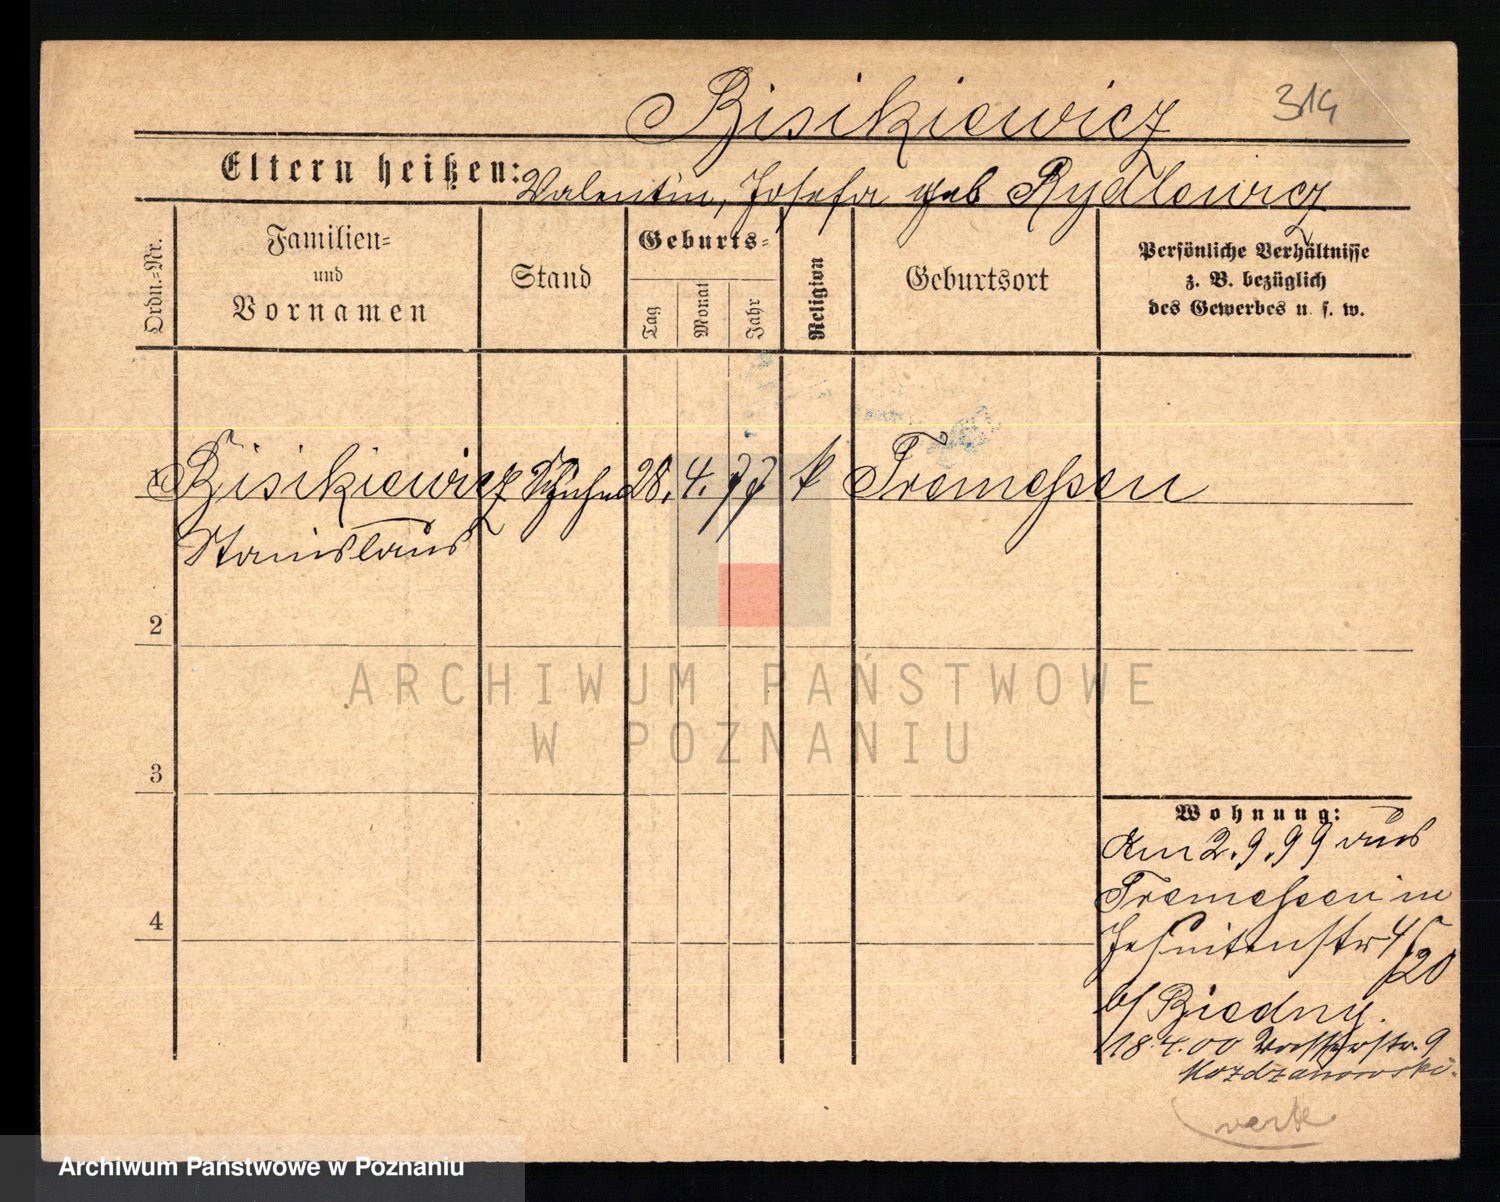 Bisikiewicz
314
Eltern heißen: Valentin, Josefa geb Rydlewicz
Ordn.=Nr.
Familien=
und
Vornamen
Stand
Geburts=
Tag
Monat
Jahr
Religion
Geburtsort
Persönliche Verhältnisse
z. B. bezüglich
des Gewerbes u. s. w.
1 Bisikiewicz 28. 4. 77 k Tremessen
Stanislaus
2
3
4
Wohnung:
Am 2.9.99 aus
Tremessen in
Jesuitenstr 4/5
20
b/ Biedny.
18.4.00 Wasserstr. 9
Mozdzanowski.
verte
ARCHIWUM PAŃSTWOWE
W POZNANIU
Archiwum Państwowe w Poznaniu